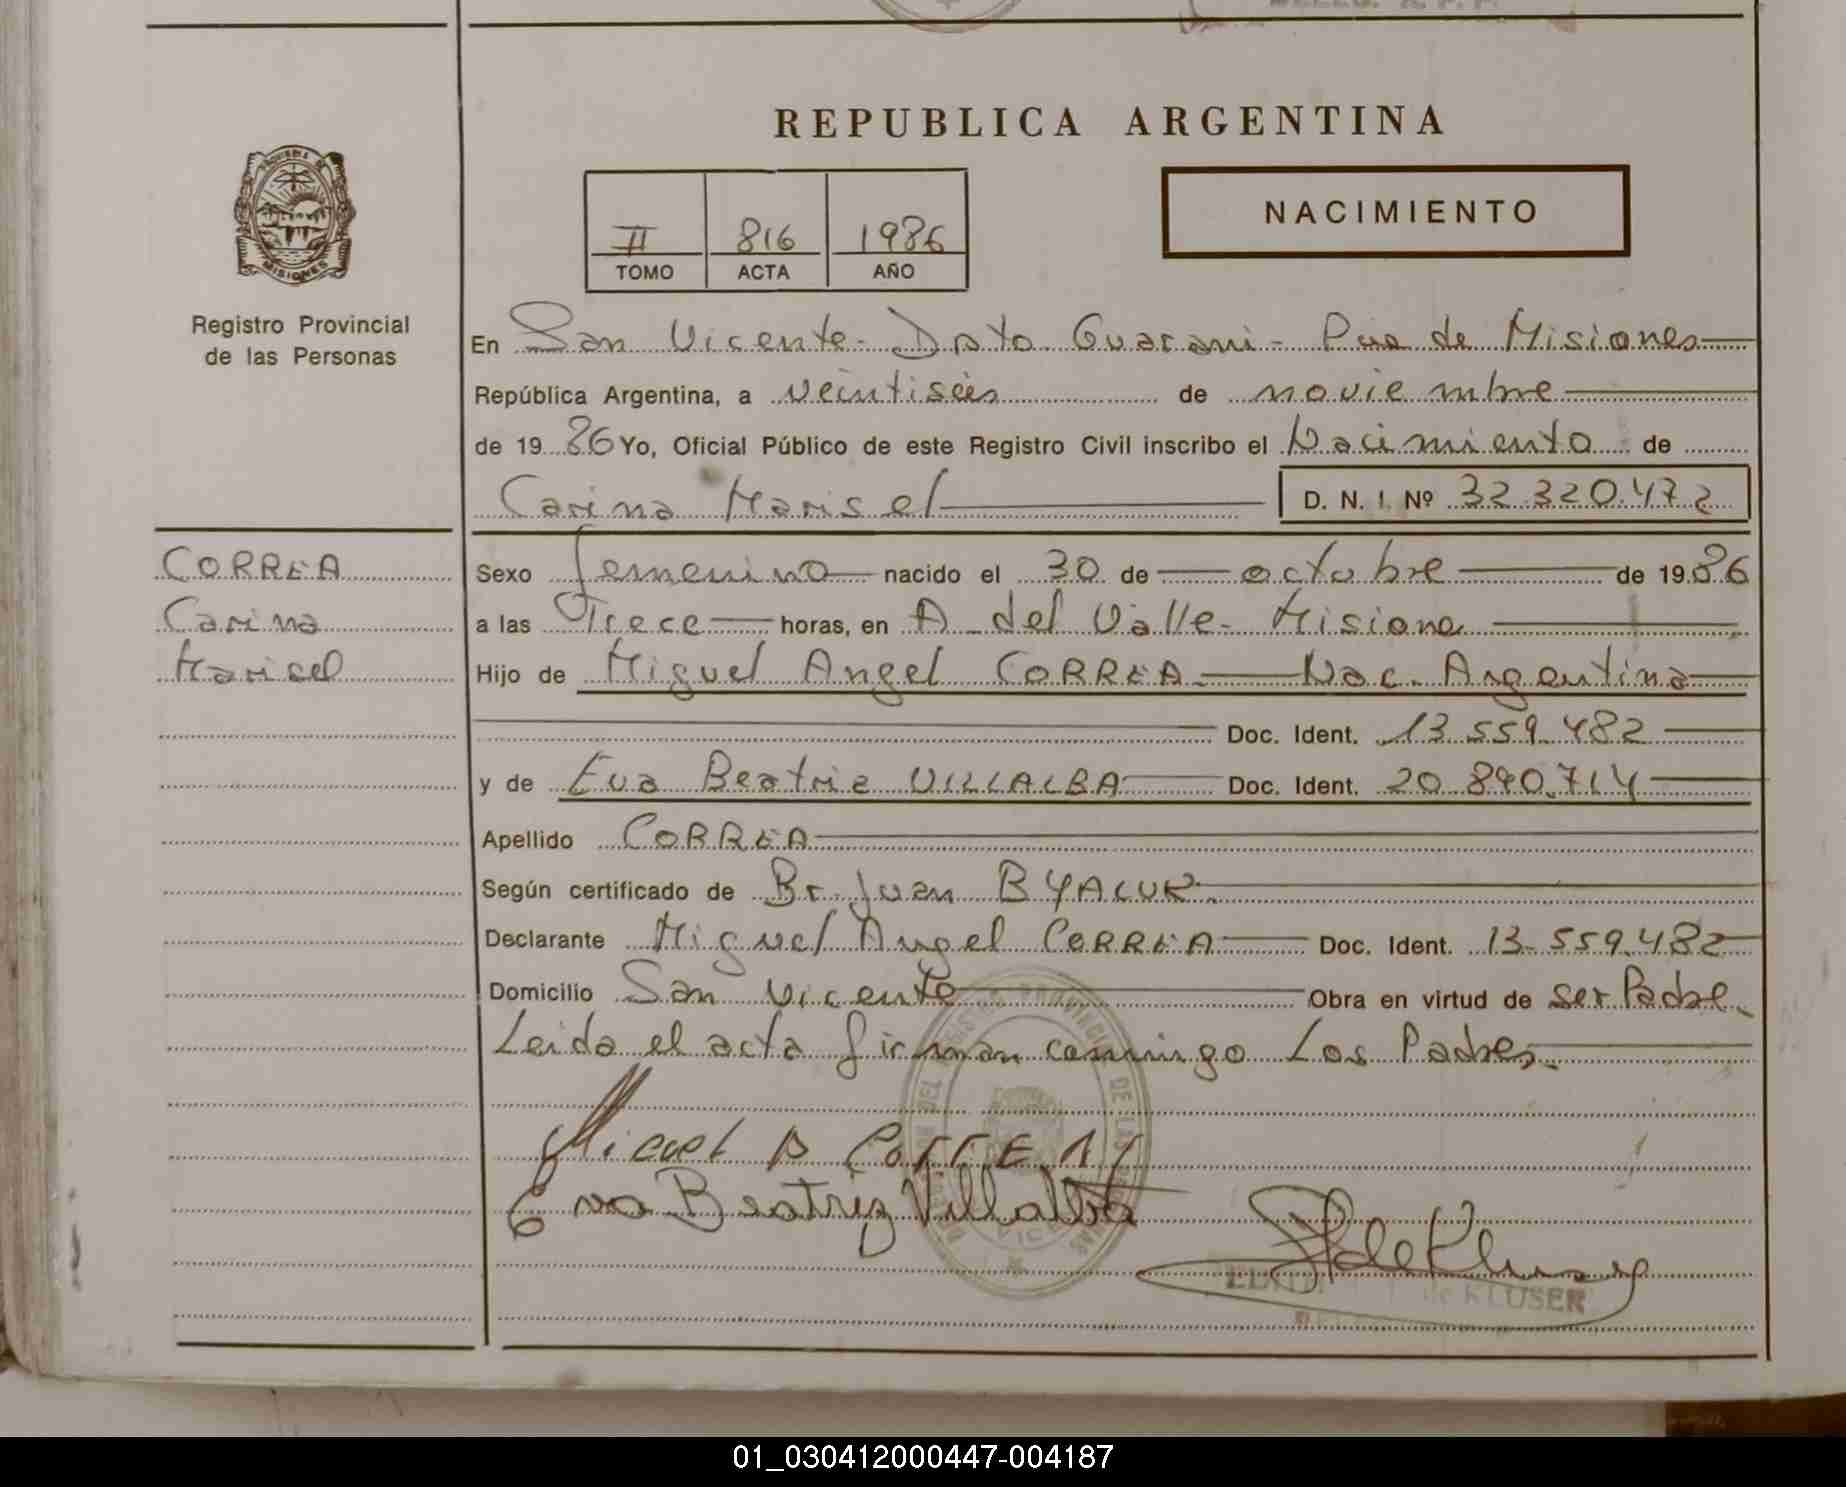 REPUBLICA ARGENTINA
NACIMIENTO
II 816 1986
TOMO ACTA AÑO
MISIONES
Registro Provincial
de las Personas
En San Vicente - Dpto Guarani - Pcia de Misiones
República Argentina, a veintiseis de noviembre
de 1986 Yo, Oficial Público de este Registro Civil inscribo el Nacimiento de
Carina Marisel D. N. I. Nº 32.320.472
CORREA
Carina
Marisel
Sexo femenino nacido el 30 de octubre de 1986
a las Trece horas, en A. del Valle - Misiones
Hijo de Miguel Angel CORREA - Nac. Argentina
Doc. Ident. 13.559.482
y de Eva Beatriz VILLALBA Doc. Ident. 20.890.714
Apellido CORREA
Según certificado de Br. Juan BYALUK.
Declarante Miguel Angel CORREA Doc. Ident. 13.559.482
Domicilio San Vicente Obra en virtud de ser Padre.
Leida el acta firman conmigo Los Padres.
Miguel A Correa
Eva Beatriz Villalba
de Kluser
de KLUSER
01_030412000447-004187